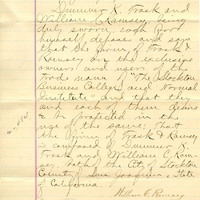 Drummer K. Trask and
William C. Ramsey, being
duly sworn, each for
himself, deposes and says
that the firm of Trask &
Ramsey are the exclusive
owners and users of the
trade name of "The Stockton
Business College and Normal
Institute" and that they
and each of them desire
to be protected in the
use of the same; that
the firm of Trask & Ramsey
is composed of
Trask and William C. Ram-
sey, both of the City of Stockton
County of San Joaquin, State
of California.
William C. Ramsey